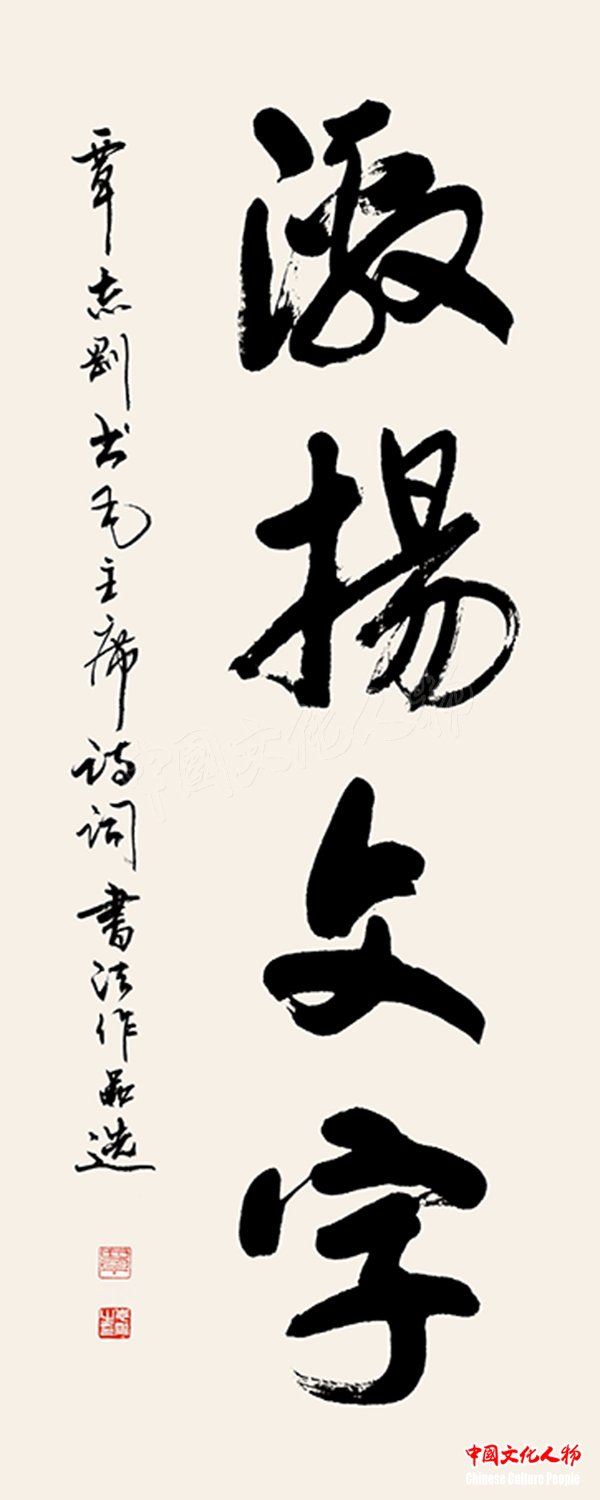 激揚文字
覃志剛书毛主席诗词書法作品选
中國文化人物
中國文化人物
Chinese Culture People